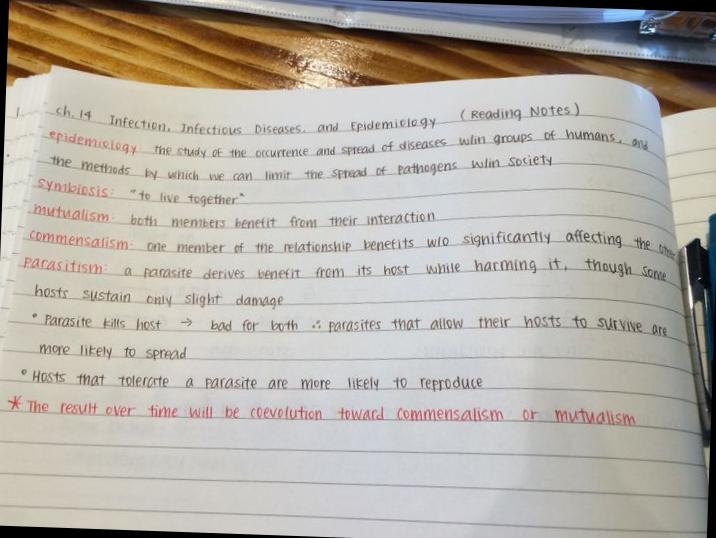 ch. 14 Infection, Infectious Diseases, and Epidemiology (Reading Notes)
epidemiology the study of the occurrence and spread of diseases w/in groups of humans, and
the methods by which we can limit the spread of pathogens w/in society
symbiosis: "to live together"
mutualism: both members benefit from their interaction
commensalism: one member of the relationship benefits w/o significantly affecting the other
parasitism: a parasite derives benefit from its host while harming it, though some
hosts sustain only slight damage
° Parasite kills host → bad for both ∴ parasites that allow their hosts to survive are
more likely to spread
° Hosts that tolerate a parasite are more likely to reproduce
* The result over time will be coevolution toward commensalism or mutualism